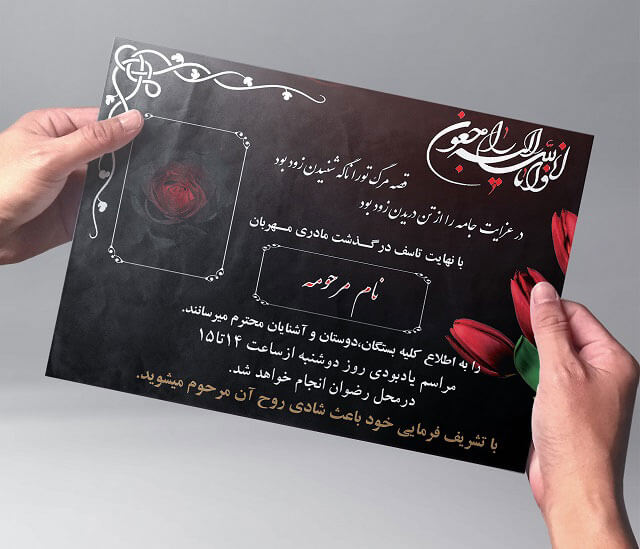 انا لله و انا الیه راجعون
قصه مرگ تو را ناگه شنیدن زود بود
در عزایت جامه را از تن دریدن زود بود
با نهایت تاسف درگذشت مادری مهربان
نام مرحومه
را به اطلاع کلیه بستگان،دوستان و آشنایان محترم میرسانند.
مراسم یادبودی روز دوشنبه از ساعت ۱۴تا۱۵
درمحل رضوان انجام خواهد شد.
با تشریف فرمایی خود باعث شادی روح آن مرحوم میشوید.